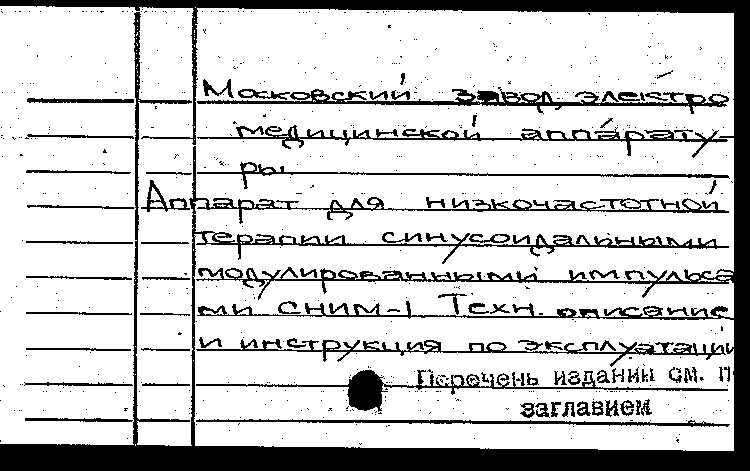 Московский завод электро
медицинской аппарату-
ры.
Аппарат для низкочастотной
терапии синусоидальными
модулированными импульса
ми СНИМ-1 Техн. описание
и инструкция по эксплуатации
Перечень издании см. п
заглавием